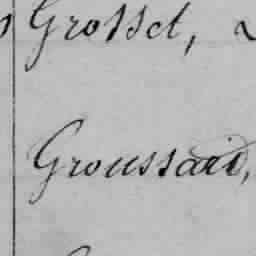 Grosset,
Groussard,